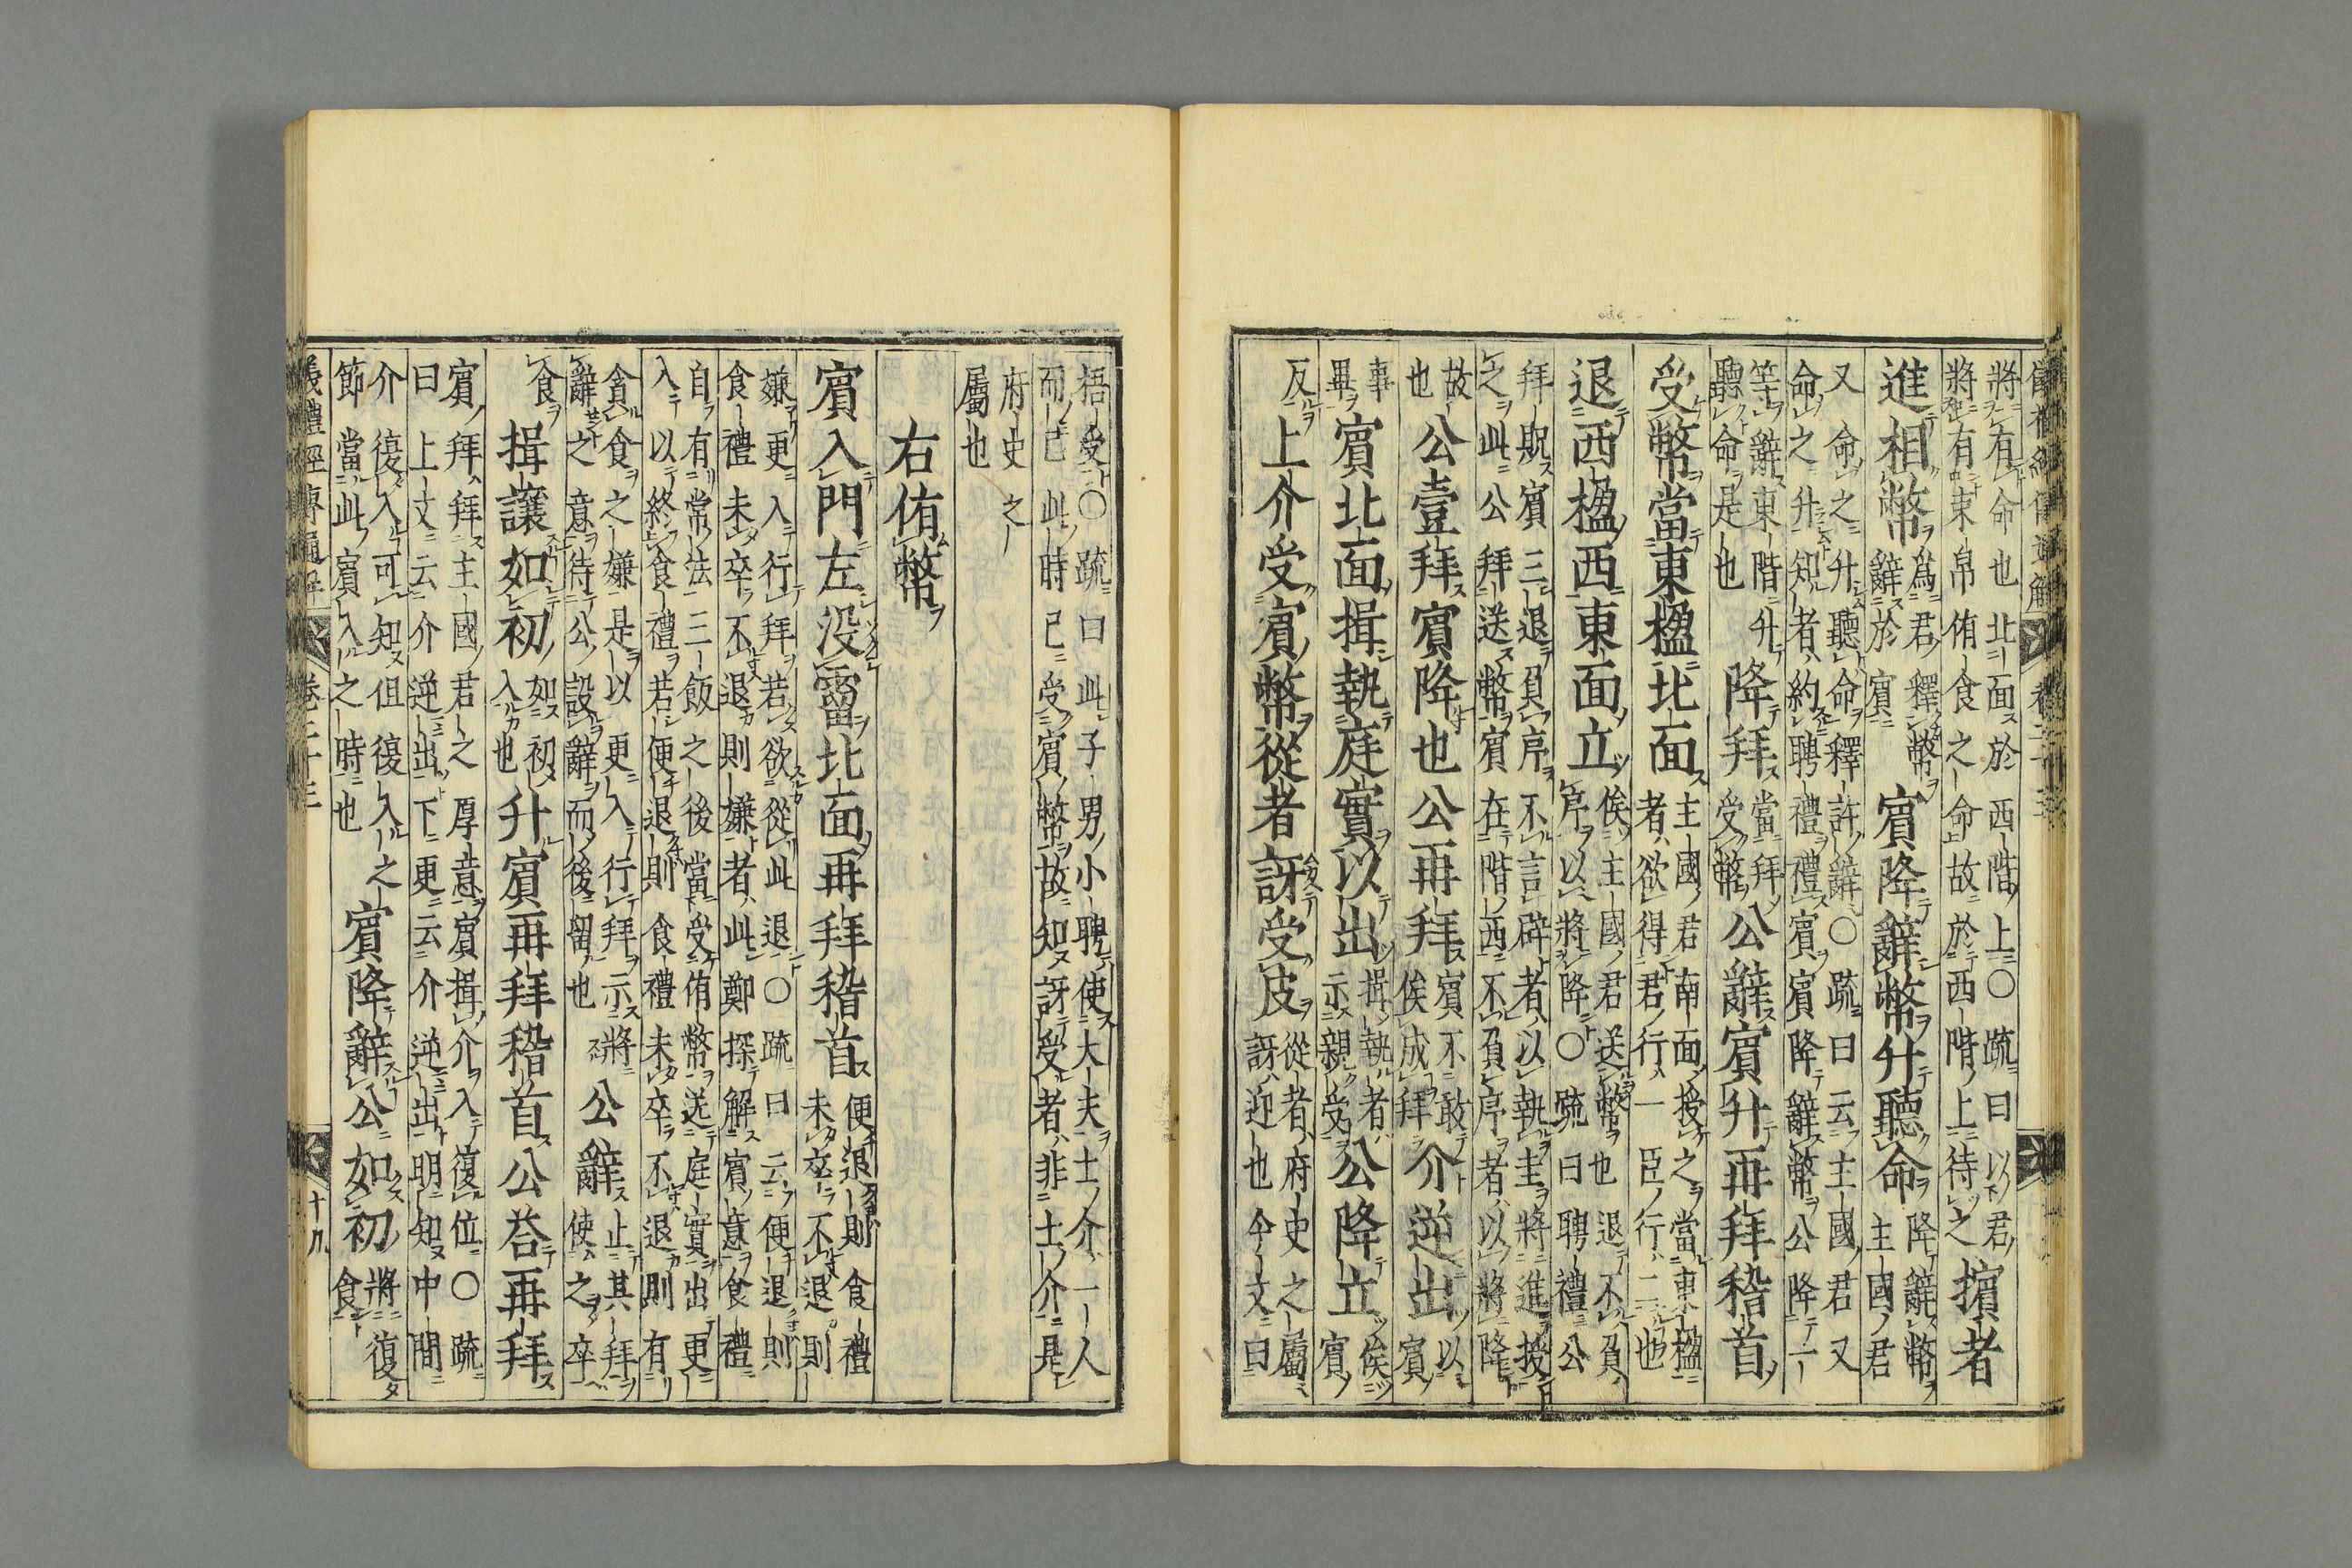 儀禮經傳通解 卷二十三
將有命也北面於西階上○疏曰以君
將有束帛侑食之命故於西階上待之
擯者
進相幣
爲君釋幣
辭於賓
賓降辭幣升聽命
降辭幣
主國君
又命之升聽命釋許辭○疏曰云主國君又
命之升知者約聘禮禮賓賓降辭幣公降一
等辭東階升
聽命是也
降拜
當拜
受幣
公辭賓升再拜稽首
受幣當東楹北面
主國君南面授之當東楹
者欲得君行一臣行二也
退西楹西東面立
俟主國君送幣也退不負
序以將降○疏曰聘禮公
拜貺賓三退負序不言辟者以執圭將進授
之此公拜送幣賓在階西不負序者以將降
故
也
公壹拜賓降也公再拜
賓不敢
俟成拜
介逆出
以
賓
事
畢
賓北面揖執庭實以出
揖執者
示親受
公降立
俟
賓
反
上介受賓幣從者訝受皮
從者府史之屬
訝迎也今文曰
梧受○疏曰此子男小聘使大夫士介一人
而已此時已受賓幣故知訝受者非士介是
府史之
屬也
右侑幣
賓入門左没霤北面再拜稽首
便退則食禮
未卒不退則
嫌更入行拜若欲從此退○疏曰云便退則
食禮未卒不退則嫌者此鄭探解賓意食禮
自有常法三飯之後當受侑幣送庭實出更
入以終食禮若便退則食禮未卒不退則有
貪食之嫌是以更入行拜示將
辭之意待公設辭而後留也
公辭
止其拜
使之卒
食
揖讓如初
如初
入也
升賓再拜稽首公荅再拜
賓拜拜主國君之厚意賓揖介入復位○疏
曰上文云介逆出下更云介逆出明知中間
介復入可知但復入之
節當此賓入之時也
賓降辭公如初
將復
食
儀禮經傳通解 卷二十三 十九